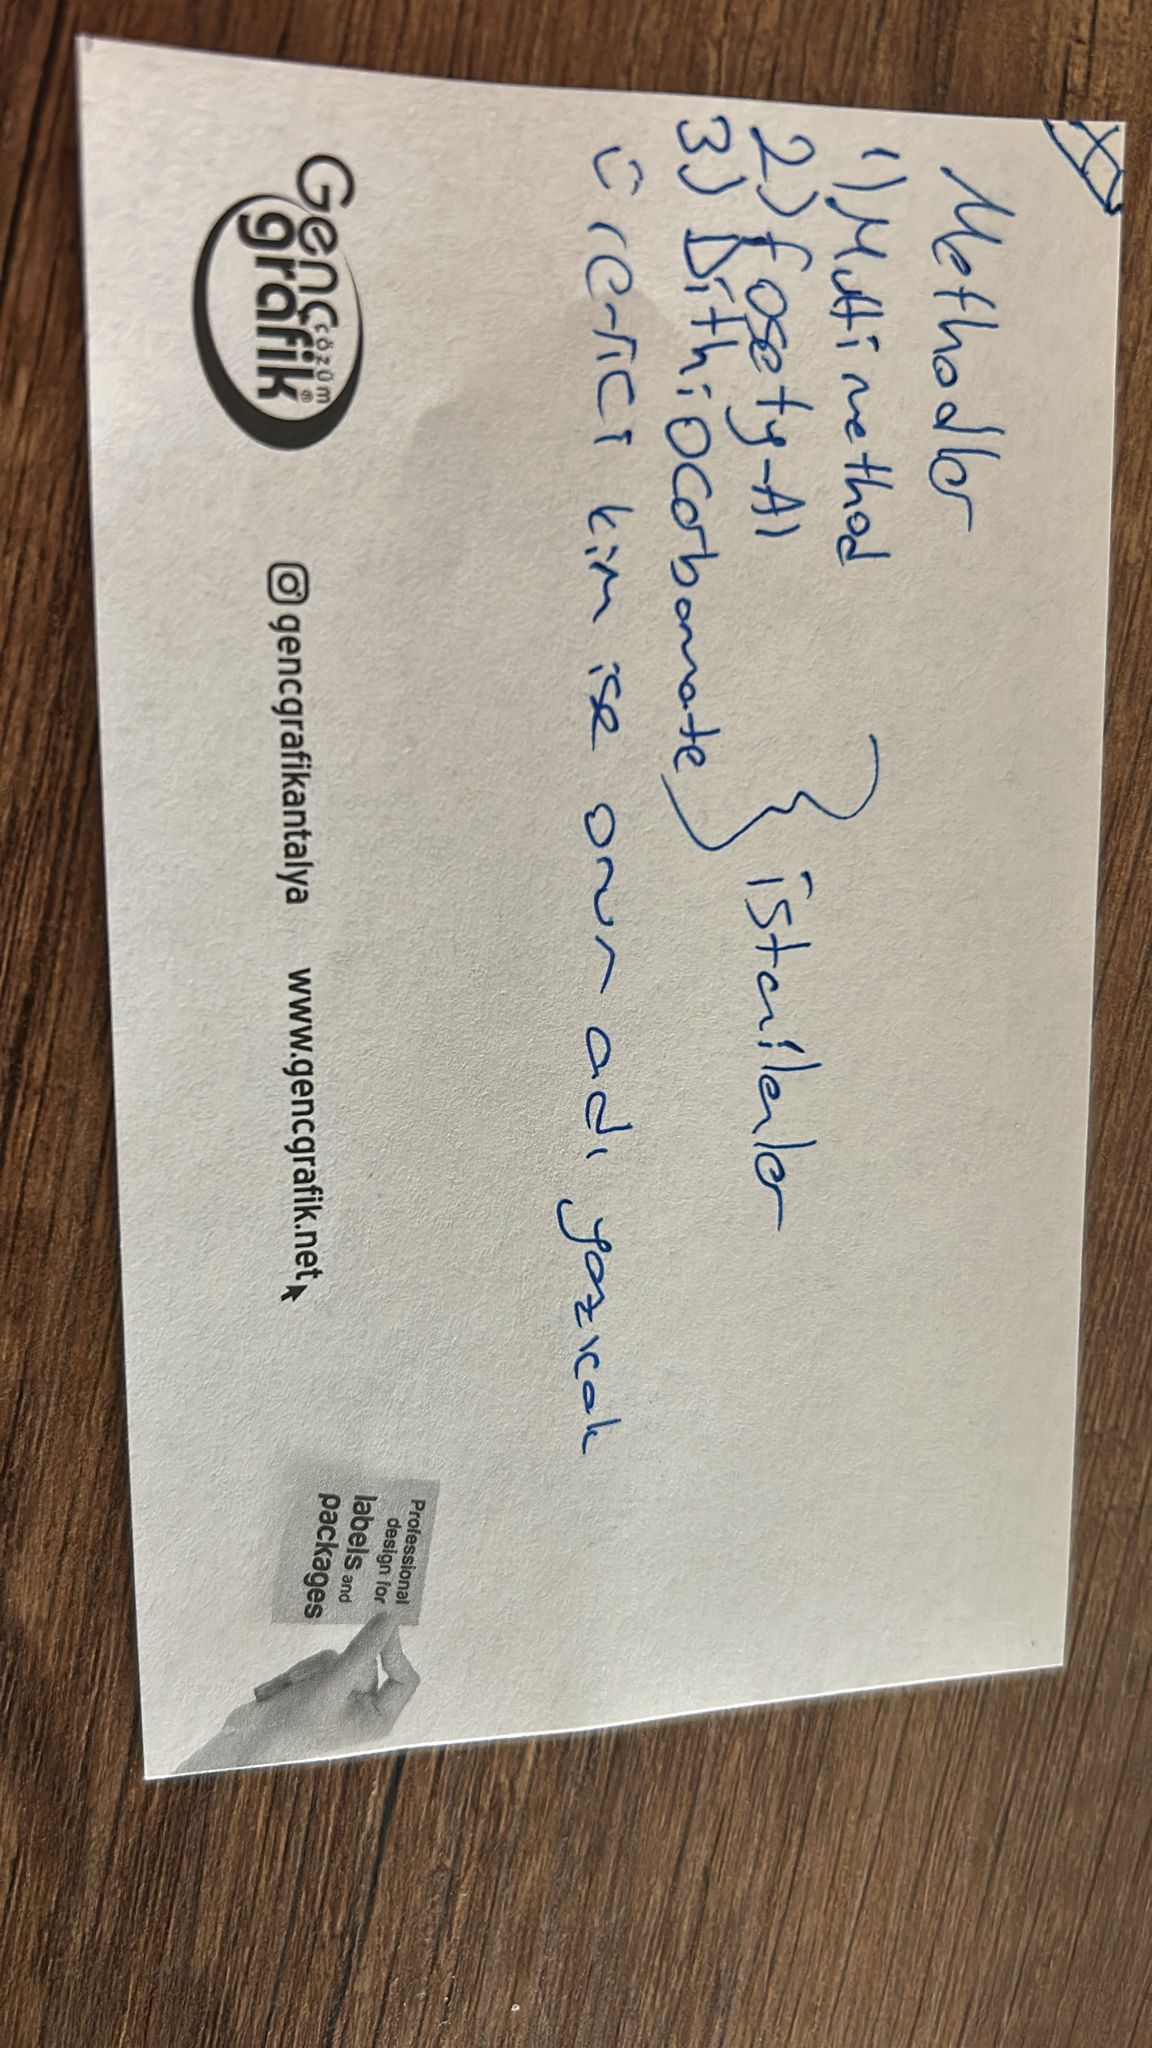 Methodlar
1) Multi method
2) fosety-Al
3) Dithiocarbamate } istenilenler
üretici kim ise onun adı yazıcak
Genç
çözüm
grafik®
gencgrafikantalya www.gencgrafik.net
Professional
design for
labels and
packages